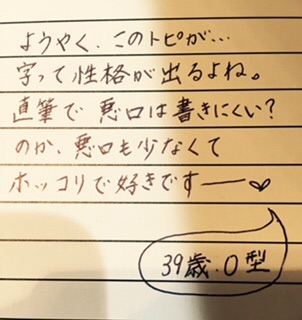 ようやく、このトピが…
字って性格が出るよね。
直筆で 悪口は書きにくい?
のか、悪口も少なくて
ホッコリで好きです――♡
39歳.O型